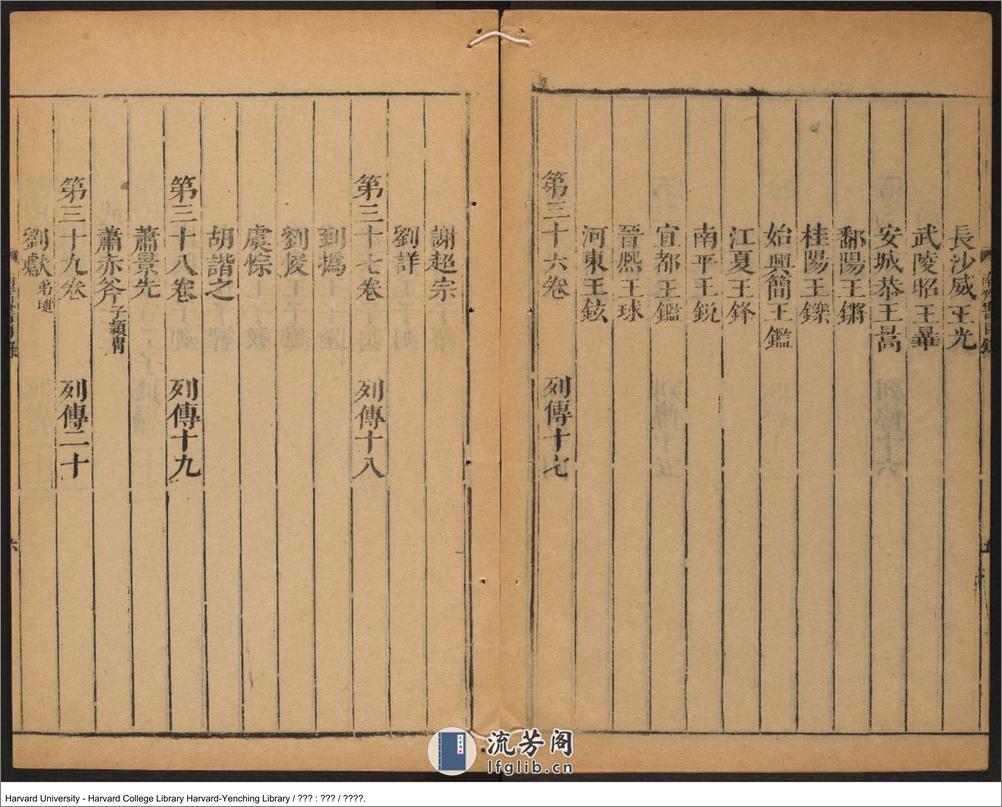 長沙威王光
武陵昭王曅
安城恭王暠
鄱陽王鏘
桂陽王鑠
始興簡王鑑
江夏王鋒
南平王銳
宜都王鑑
晉熈王球
河東王鉉
第三十六卷 列傳十七
謝超宗
劉詳
第三十七卷 列傳十八
到撝
劉悛
虞悰
胡諧之
第三十八卷 列傳十九
蕭景先
蕭赤斧子頴胄
第三十九卷 列傳二十
劉瓛弟璡
六
流芳阁
lfglib.cn
Harvard University - Harvard College Library Harvard-Yenching Library / ??? : ??? / ????.